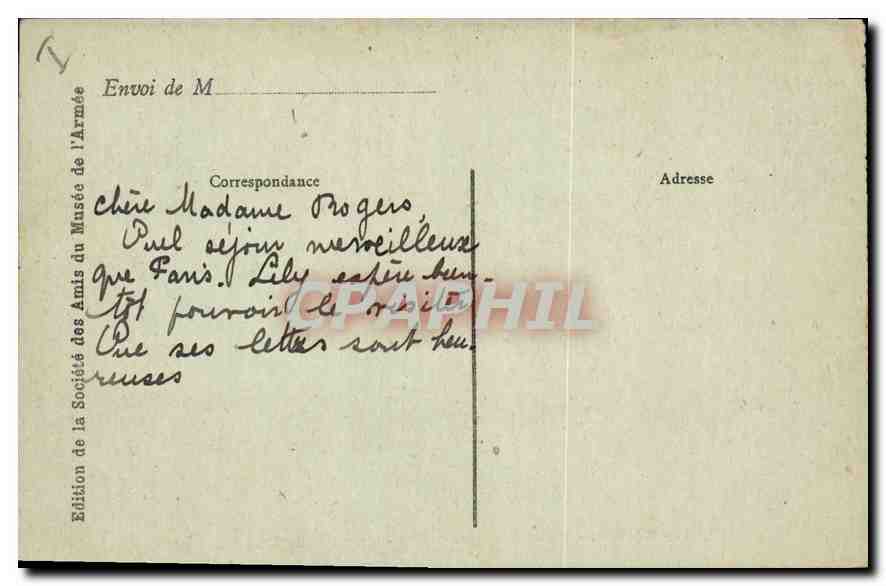 Envoi de M
Edition de la Société des Amis du Musée de l'Armée
Correspondance
Adresse
chère Madame Rogers,
Quel séjour merveilleux
que Paris. Lily espère bien-
tôt pouvoir le visiter
Que ses lettres sont heu-
reuses
CPAPHIL